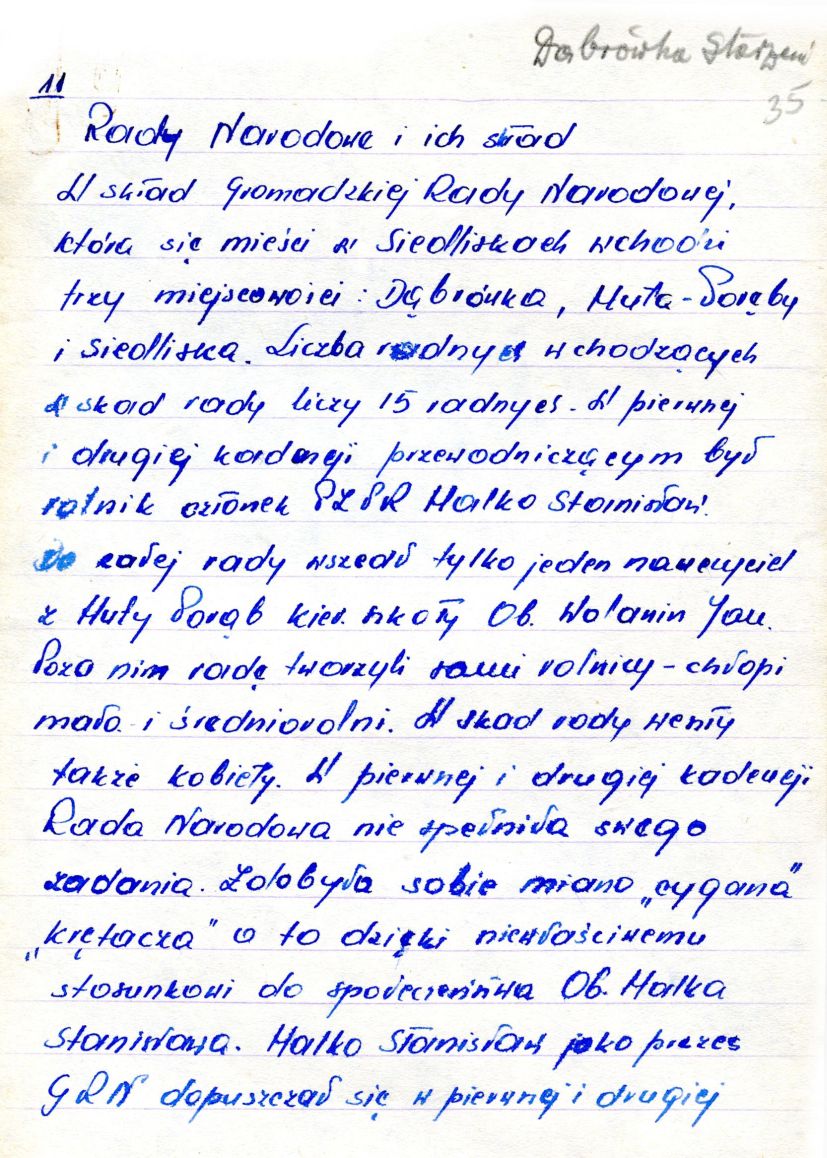 Dąbrówka Starzeń
11
35
Rady Narodowe i ich skład
W skład Gromadzkiej Rady Narodowej,
która się mieści w Siedliskach wchodzi
trzy miejscowości: Dąbrówka, Huta-Poręby
i Siedliska. Liczba radnych wchodzących
w skad rady liczy 15 radnych. W pierwnej
i drugiej kadencji przewodniczącym był
rolnik członek PZPR Halko Stanisław.
Do całej rady wszedł tylko jeden nauczyciel
z Huty Poręb kier. szkoły Ob. Wolanin Jan.
Poza nim radę tworzyli sami rolnicy - chłopi
mało - i średniorolni. W skad rady weszły
także kobiety. W pierwnej i drugiej kadencji
Rada Narodowa nie spełniła swego
zadania. Zdobyła sobie miano „cygana"
„krętacza" a to dzięki niewłaściwemu
stosunkowi do społeczeństwa Ob. Halka
Stanisława. Halko Stanisław jako prezes
GRN dopuszczał się w pierwnej i drugiej